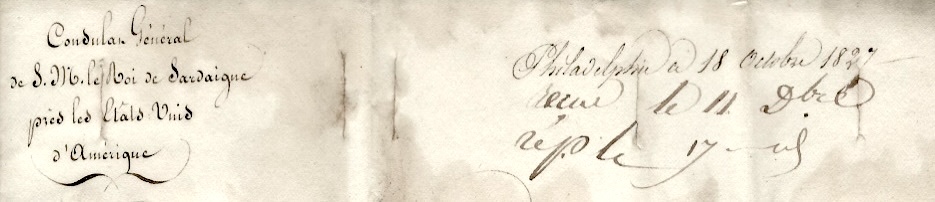 Consulat Général
de S. M. le Roi de Sardaigne
près les États Unis
d'Amérique
Philadelphie 18 Octobre 1827
le 11 Dbre
rép le 17